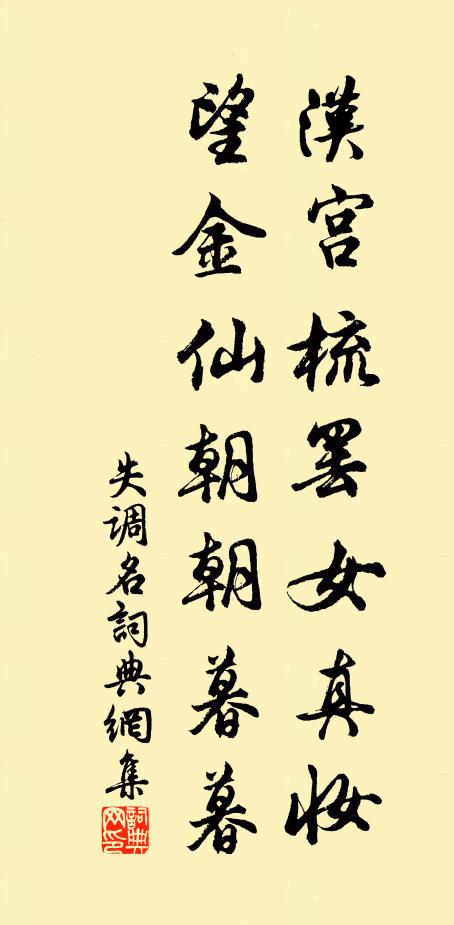 漢宮梳罢女真妆
望金仙朝朝暮暮
失调名詞典網集
詞典網印